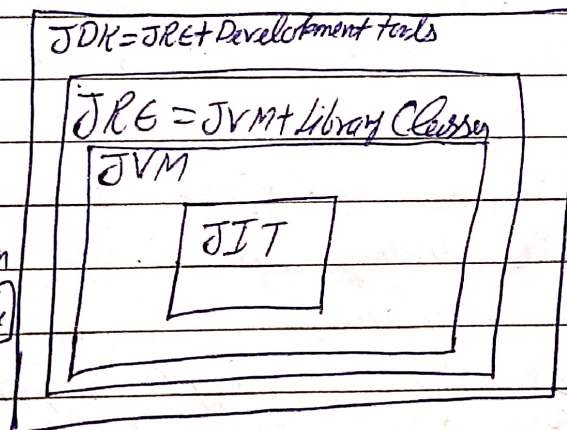 JDK=JRE+Development tools
JRE = JVM+Library Classes
JVM
JIT